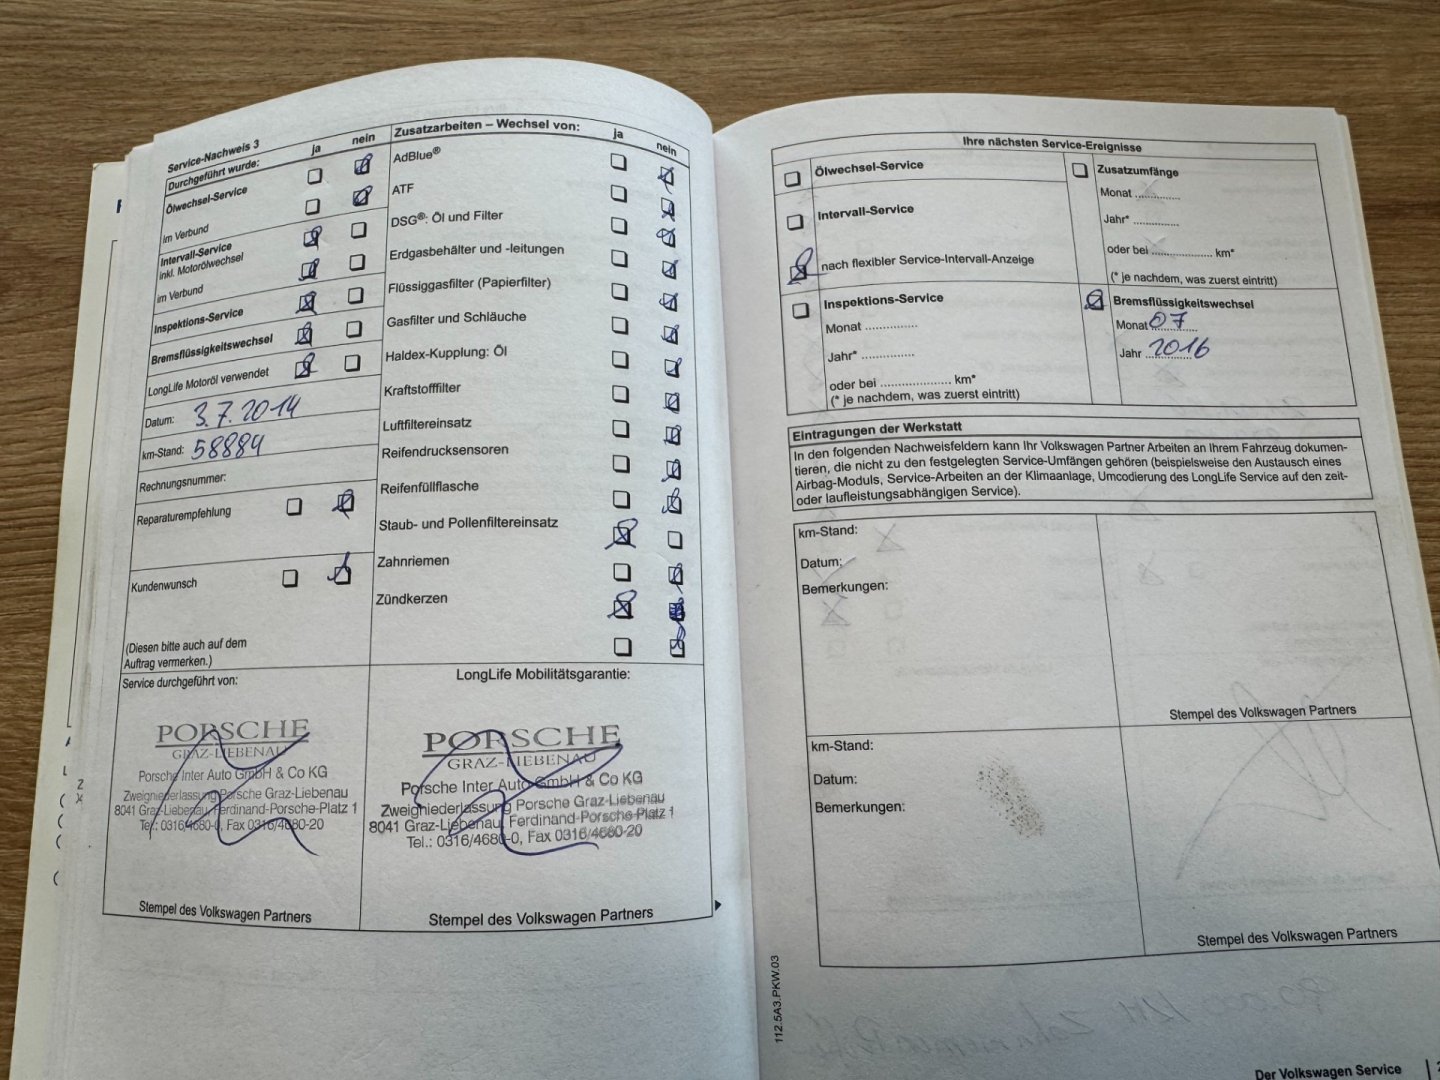 Service-Nachweis 3
ja nein
Durchgeführt wurde:
Ölwechsel-Service
im Verbund
Intervall-Service
inkl. Motorölwechsel
im Verbund
Inspektions-Service
Bremsflüssigkeitswechsel
LongLife Motoröl verwendet
Datum: 3.7.2014
km-Stand: 58884
Rechnungsnummer:
Reparaturempfehlung
Kundenwunsch
(Diesen bitte auch auf dem
Auftrag vermerken.)
Zusatzarbeiten – Wechsel von: ja nein
AdBlue®
ATF
DSG®: Öl und Filter
Erdgasbehälter und -leitungen
Flüssiggasfilter (Papierfilter)
Gasfilter und Schläuche
Haldex-Kupplung: Öl
Kraftstofffilter
Luftfiltereinsatz
Reifendrucksensoren
Reifenfüllflasche
Staub- und Pollenfiltereinsatz
Zahnriemen
Zündkerzen
Service durchgeführt von:
PORSCHE
GRAZ-LIEBENAU
Porsche Inter Auto GmbH & Co KG
Zweigniederlassung Porsche Graz-Liebenau
8041 Graz-Liebenau, Ferdinand-Porsche-Platz 1
Tel.: 0316/4680-0, Fax 0316/4680-20
Stempel des Volkswagen Partners
LongLife Mobilitätsgarantie:
PORSCHE
GRAZ-LIEBENAU
Porsche Inter Auto GmbH & Co KG
Zweigniederlassung Porsche Graz-Liebenau
8041 Graz-Liebenau, Ferdinand-Porsche-Platz 1
Tel.: 0316/4680-0, Fax 0316/4680-20
Stempel des Volkswagen Partners
Ihre nächsten Service-Ereignisse
Ölwechsel-Service
Intervall-Service
nach flexibler Service-Intervall-Anzeige
Inspektions-Service
Monat ..............
Jahr* ..............
oder bei .................... km*
(* je nachdem, was zuerst eintritt)
Zusatzumfänge
Monat ............
Jahr* ............
oder bei ................ km*
(* je nachdem, was zuerst eintritt)
Bremsflüssigkeitswechsel
Monat 07
Jahr 2016
Eintragungen der Werkstatt
In den folgenden Nachweisfeldern kann Ihr Volkswagen Partner Arbeiten an Ihrem Fahrzeug dokumen-
tieren, die nicht zu den festgelegten Service-Umfängen gehören (beispielsweise den Austausch eines
Airbag-Moduls, Service-Arbeiten an der Klimaanlage, Umcodierung des LongLife Service auf den zeit-
oder laufleistungsabhängigen Service).
km-Stand:
Datum:
Bemerkungen:
Stempel des Volkswagen Partners
km-Stand:
Datum:
Bemerkungen:
Stempel des Volkswagen Partners
112.5A3.PKW.03
Der Volkswagen Service